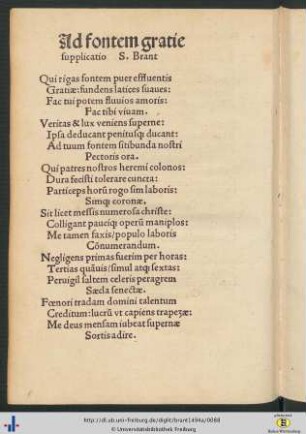 Ad fontem gratie
supplicatio S. Brant
Qui rigas fontem puer effluentis
Gratiæ: fundens latices suaues:
Fac tui potem fluuios amoris:
Fac tibi viuam.
Veritas & lux veniens superne:
Ipsa deducant penitusq; ducant:
Ad tuum fontem sitibunda nostri
Pectoris ora.
Qui patres nostros heremi colonos:
Dura fecisti tolerare cuncta:
Particeps horũ rogo sim laboris:
Simq; coronæ.
Sit licet messis numerosa christe:
Colligant pauciq; operũ maniplos:
Me tamen faxis/populo laboris
Cõnumerandum.
Negligens primas fuerim per horas:
Tertias quãuis/simul atq; sextas:
Peruigil saltem celeris peragrem
Sæcla senectæ.
Fœnori tradam domini talentum
Creditum: lucrũ vt capiens trapezæ:
Me deus mensam iubeat supernæ
Sortis adire.
http://dl.ub.uni-freiburg.de/diglit/brant1494a/0088
© Universitätsbibliothek Freiburg